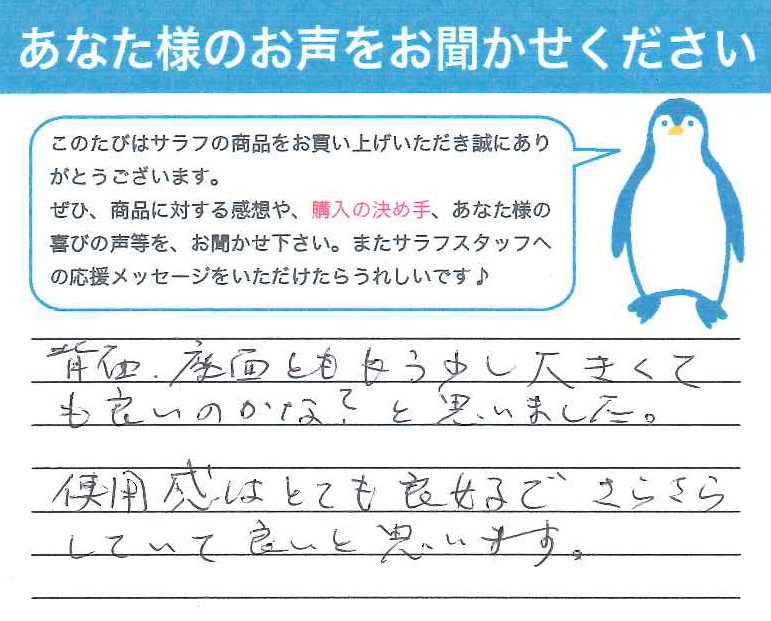 あなた様のお声をお聞かせください
このたびはサラフの商品をお買い上げいただき誠にあり
がとうございます。
ぜひ、商品に対する感想や、購入の決め手、あなた様の
喜びの声等を、お聞かせ下さい。またサラフスタッフへ
の応援メッセージをいただけたらうれしいです♪
背面、座面とももう少し大きくて
も良いのかな?と思いました。
使用感はとても良好でさらさら
していて良いと思います。